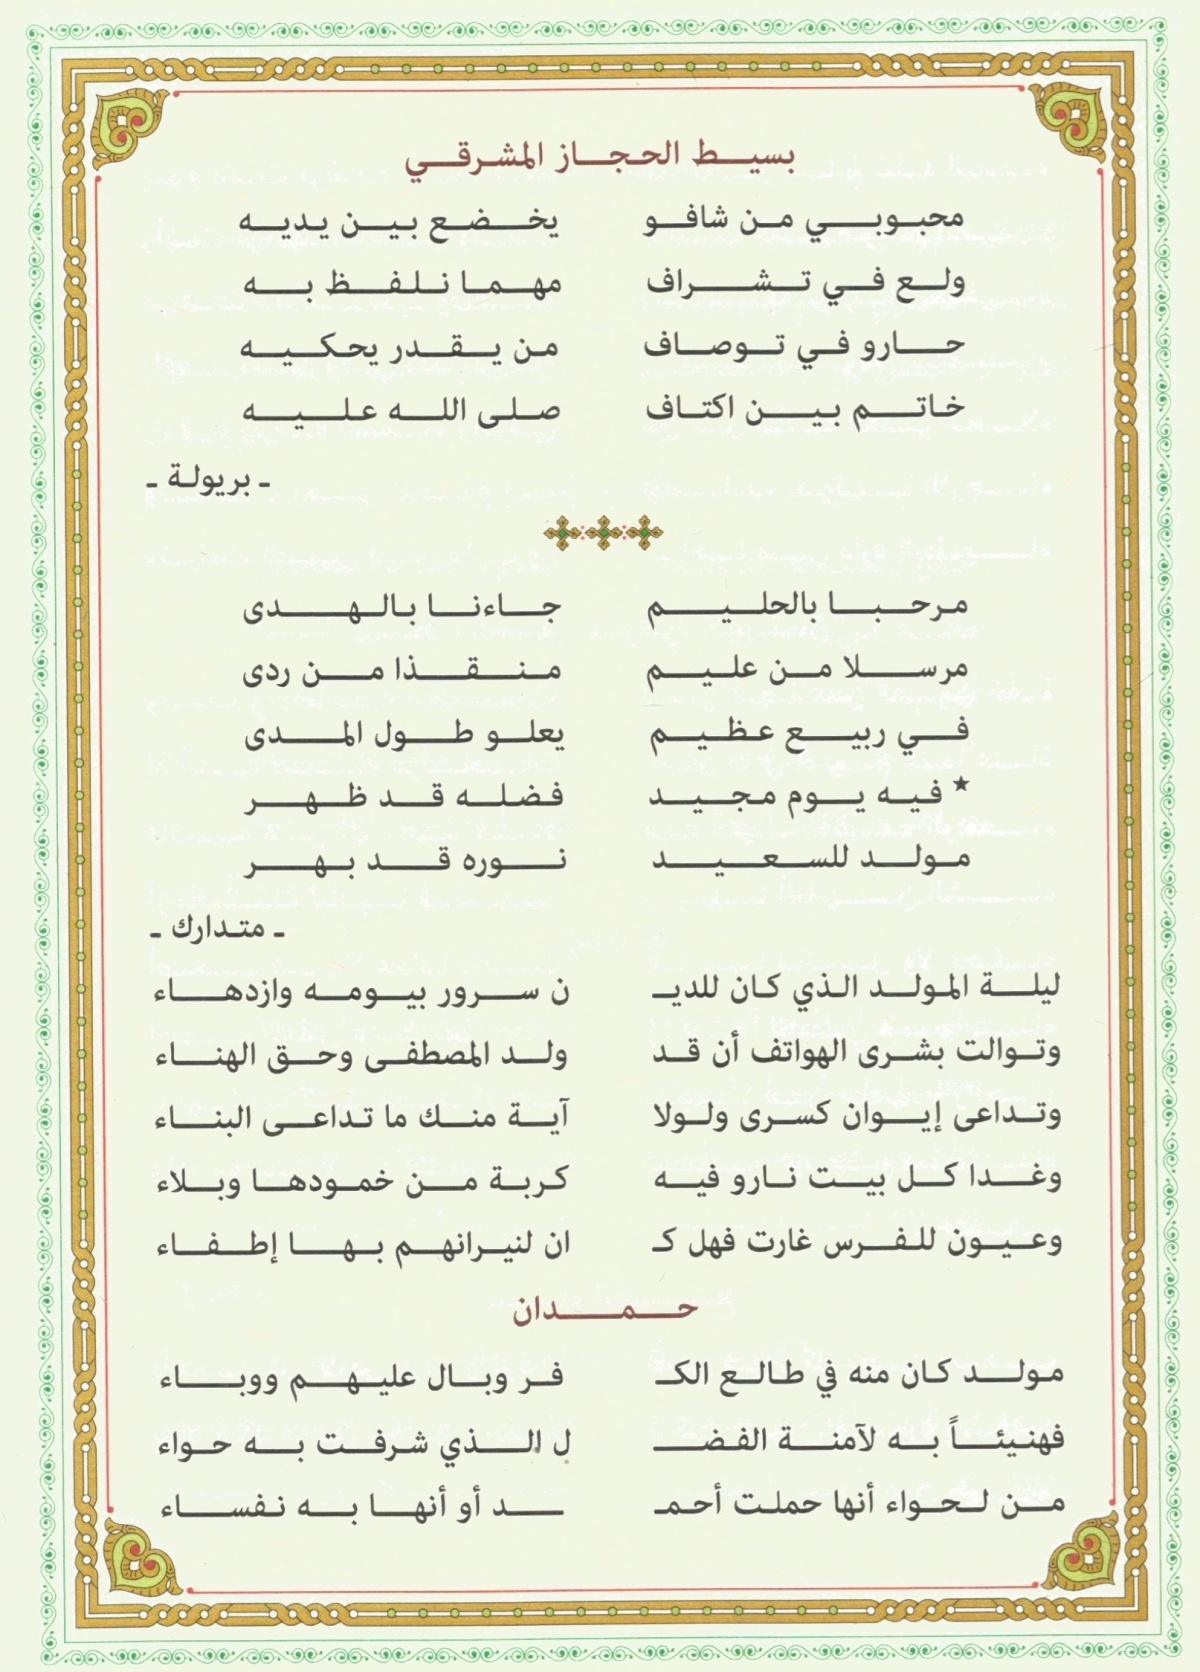 بسيط الحجاز المشرقي
محبوبي من شافو يخضع بين يديه
ولع في تشراف مهما نلفظ به
حارو في توصاف من يقدر يحكيه
خاتم بين اكتاف صلى الله عليه
ـ بريولة ـ
مرحبا بالحليم جاءنا بالهدى
مرسلا من عليم منقذا من ردى
في ربيع عظيم يعلو طول المدى
★ فيه يوم مجيد فضله قد ظهر
مولد للسعيد نوره قد بهر
ـ متدارك ـ
ليلة المولد الذي كان للديـ ن سرور بيومه وازدهاء
وتوالت بشرى الهواتف أن قد ولد المصطفى وحق الهناء
وتداعى إيوان كسرى ولولا آية منك ما تداعى البناء
وغدا كل بيت نارو فيه كربة من خمودها وبلاء
وعيون للفرس غارت فهل كـ ان لنيرانهم بها إطفاء
حمدان
مولد كان منه في طالع الكـ فر وبال عليهم ووباء
فهنيئاً به لآمنة الفضـ ل الذي شرفت به حواء
من لحواء أنها حملت أحمـ ـد أو أنها به نفساء